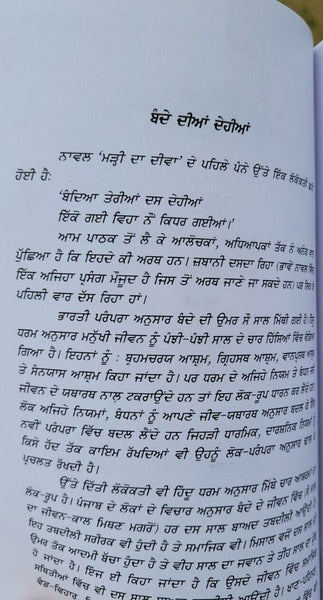 ਬੰਦੇ ਦੀਆਂ ਦੇਹੀਆਂ
ਨਾਵਲ 'ਮੜ੍ਹੀ ਦਾ ਦੀਵਾ' ਦੇ ਪਹਿਲੇ ਪੰਨੇ ਉੱਤੇ ਇੱਕ ਲੋਕੋਕਤੀ
ਹੋਈ ਹੈ:
'ਬੰਦਿਆ ਤੇਰੀਆਂ ਦਸ ਦੇਹੀਆਂ
ਇੱਕੋ ਗਈ ਵਿਹਾ ਨੌਂ ਕਿਧਰ ਗਈਆਂ।'
ਆਮ ਪਾਠਕ ਤੋਂ ਲੈ ਕੇ ਆਲੋਚਕਾਂ, ਅਧਿਆਪਕਾਂ ਤੱਕ ਨੇ ਅਨੇਕ
ਪੁੱਛਿਆ ਹੈ ਕਿ ਇਹਦੇ ਕੀ ਅਰਥ ਹਨ। ਜ਼ਬਾਨੀ ਦਸਦਾ ਰਿਹਾ (ਭਾਵੇਂ ਨਾਵਲ ਵਿੱਚ
ਇੱਕ ਅਜਿਹਾ ਪ੍ਰਸੰਗ ਮੌਜੂਦ ਹੈ ਜਿਸ ਤੋਂ ਅਰਥ ਜਾਣੇ ਜਾ ਸਕਦੇ ਹਨ) ਪਰ ਲਿਖ ਕੇ
ਪਹਿਲੀ ਵਾਰ ਦੱਸ ਰਿਹਾ ਹਾਂ।
ਭਾਰਤੀ ਪਰੰਪਰਾ ਅਨੁਸਾਰ ਬੰਦੇ ਦੀ ਉਮਰ ਸੌ ਸਾਲ ਮਿੱਥੀ ਗਈ ਹੈ।
ਧਰਮ ਅਨੁਸਾਰ ਮਨੁੱਖੀ ਜੀਵਨ ਨੂੰ ਪੰਝੀ-ਪੰਝੀ ਸਾਲ ਦੇ ਚਾਰ ਹਿੱਸਿਆਂ ਵਿੱਚ ਵੰਡਿਆ
ਗਿਆ ਹੈ। ਇਹਨਾਂ ਨੂੰ : ਬ੍ਰਹਮਚਰਯ ਆਸ਼੍ਰਮ, ਗ੍ਰਿਹਸਥ ਆਸ਼੍ਰਮ, ਵਾਨਪ੍ਰਸਥ ਆਸ਼੍ਰਮ
ਤੇ ਸੰਨਯਾਸ ਆਸ਼੍ਰਮ ਕਿਹਾ ਜਾਂਦਾ ਹੈ। ਪਰ ਧਰਮ ਦੇ ਅਜਿਹੇ ਨਿਯਮ ਤੇ ਬੰਧਨ ਜਦੋਂ
ਜੀਵਨ ਦੇ ਯਥਾਰਥ ਨਾਲ ਟਕਰਾਉਂਦੇ ਹਨ ਤਾਂ ਇਹ ਲੋਕ-ਰੂਪ ਧਾਰਨ ਕਰ ਲੈਂਦੇ ਹਨ।
ਲੋਕ ਅਜਿਹੇ ਨਿਯਮਾਂ, ਬੰਧਨਾਂ ਨੂੰ ਆਪਣੇ ਜੀਵ-ਯਥਾਰਥ ਅਨੁਸਾਰ ਬਦਲ ਕੇ ਇੱਕ
ਨਵੀਂ ਪਰੰਪਰਾ ਵਿੱਚ ਬਦਲ ਲੈਂਦੇ ਹਨ ਜਿਹੜੀ ਧਾਰਮਿਕ, ਦਾਰਸ਼ਨਿਕ ਨਿਯਮਾਂ ਨੂੰ
ਕਿਸੇ ਹੱਦ ਤੱਕ ਕਾਇਮ ਰੱਖਦਿਆਂ ਵੀ ਉਹਨੂੰ ਲੋਕ-ਪਰੰਪਰਾ ਅਨੁਸਾਰ ਢਾਲ ਕੇ
ਪ੍ਰਚਲਤ ਰੱਖਦੀ ਹੈ।
ਉੱਤੇ ਦਿੱਤੀ ਲੋਕੋਕਤੀ ਵੀ ਹਿੰਦੂ ਧਰਮ ਅਨੁਸਾਰ ਮਿੱਥੇ ਚਾਰ ਆਸ਼ਰਮਾਂ ਦਾ
ਲੋਕ-ਰੂਪ ਹੈ। ਪੰਜਾਬ ਦੇ ਲੋਕਾਂ ਦੇ ਵਿਚਾਰ ਅਨੁਸਾਰ ਬੰਦੇ ਦੇ ਜੀਵਨ ਵਿੱਚ
ਦਾ ਜੀਵਨ-ਕਾਲ ਮਿਥਣ ਮਗਰੋਂ) ਹਰ ਦਸ ਸਾਲ ਬਾਅਦ ਤਬਦੀਲੀ ਆਉਂਦੀ
ਇਹ ਤਬਦੀਲੀ ਸਰੀਰਕ ਵੀ ਹੁੰਦੀ ਹੈ ਤੇ ਸਮਾਜਿਕ ਵੀ। ਮਿਸਾਲ ਵਜੋਂ ਦਸ ਸਾਲ ਦੀ
ਉਮਰ ਤੱਕ ਆਦਮੀ ਬੱਚਾ ਹੁੰਦਾ ਹੈ ਤੇ ਵੀਹ ਸਾਲ ਦਾ ਜਵਾਨ ਤੇ ਤੀਹ ਸਾਲ ਦਾ
ਹੋ ਜਾਂਦਾ ਹੈ। ਇੰਜ ਈ ਕਿਹਾ ਜਾਂਦਾ ਹੈ ਕਿ ਉਸਦੇ ਜੀਵਨ ਵਿੱਚ
ਸਥਿਤੀਆਂ ਵਿੱਚ ਵੀ ਦਸ ਸਾਲ